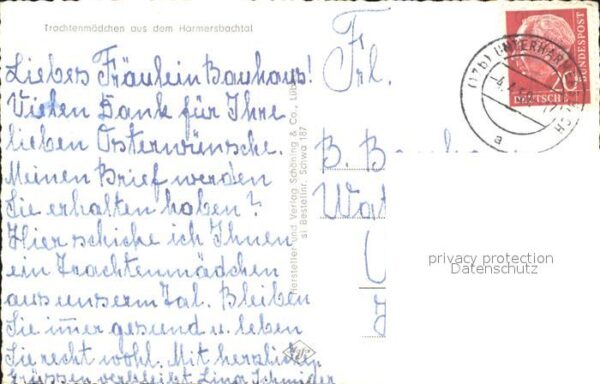 Trachtenmädchen aus dem Harmersbachtal
Liebes Fräulein Bauhaus!
Vielen Dank für Ihre
lieben Osterwünsche.
Meinen Brief werden
Sie erhalten haben?
Hier schicke ich Ihnen
ein Trachtenmädchen
aus unserm Tal. Bleiben
Sie imer gesund u. leben
Sie recht wohl. Mit herzlichen
Grüssen verbleibt Lina Schnider
Hersteller und Verlag Schöning & Co., Lüb
Bestellnr. Schwa 187
Frl.
B. Ba
Wat
(17b) UNTERHARM
a
20
DEUTSCH
BUNDESPOST
privacy protection
Datenschutz